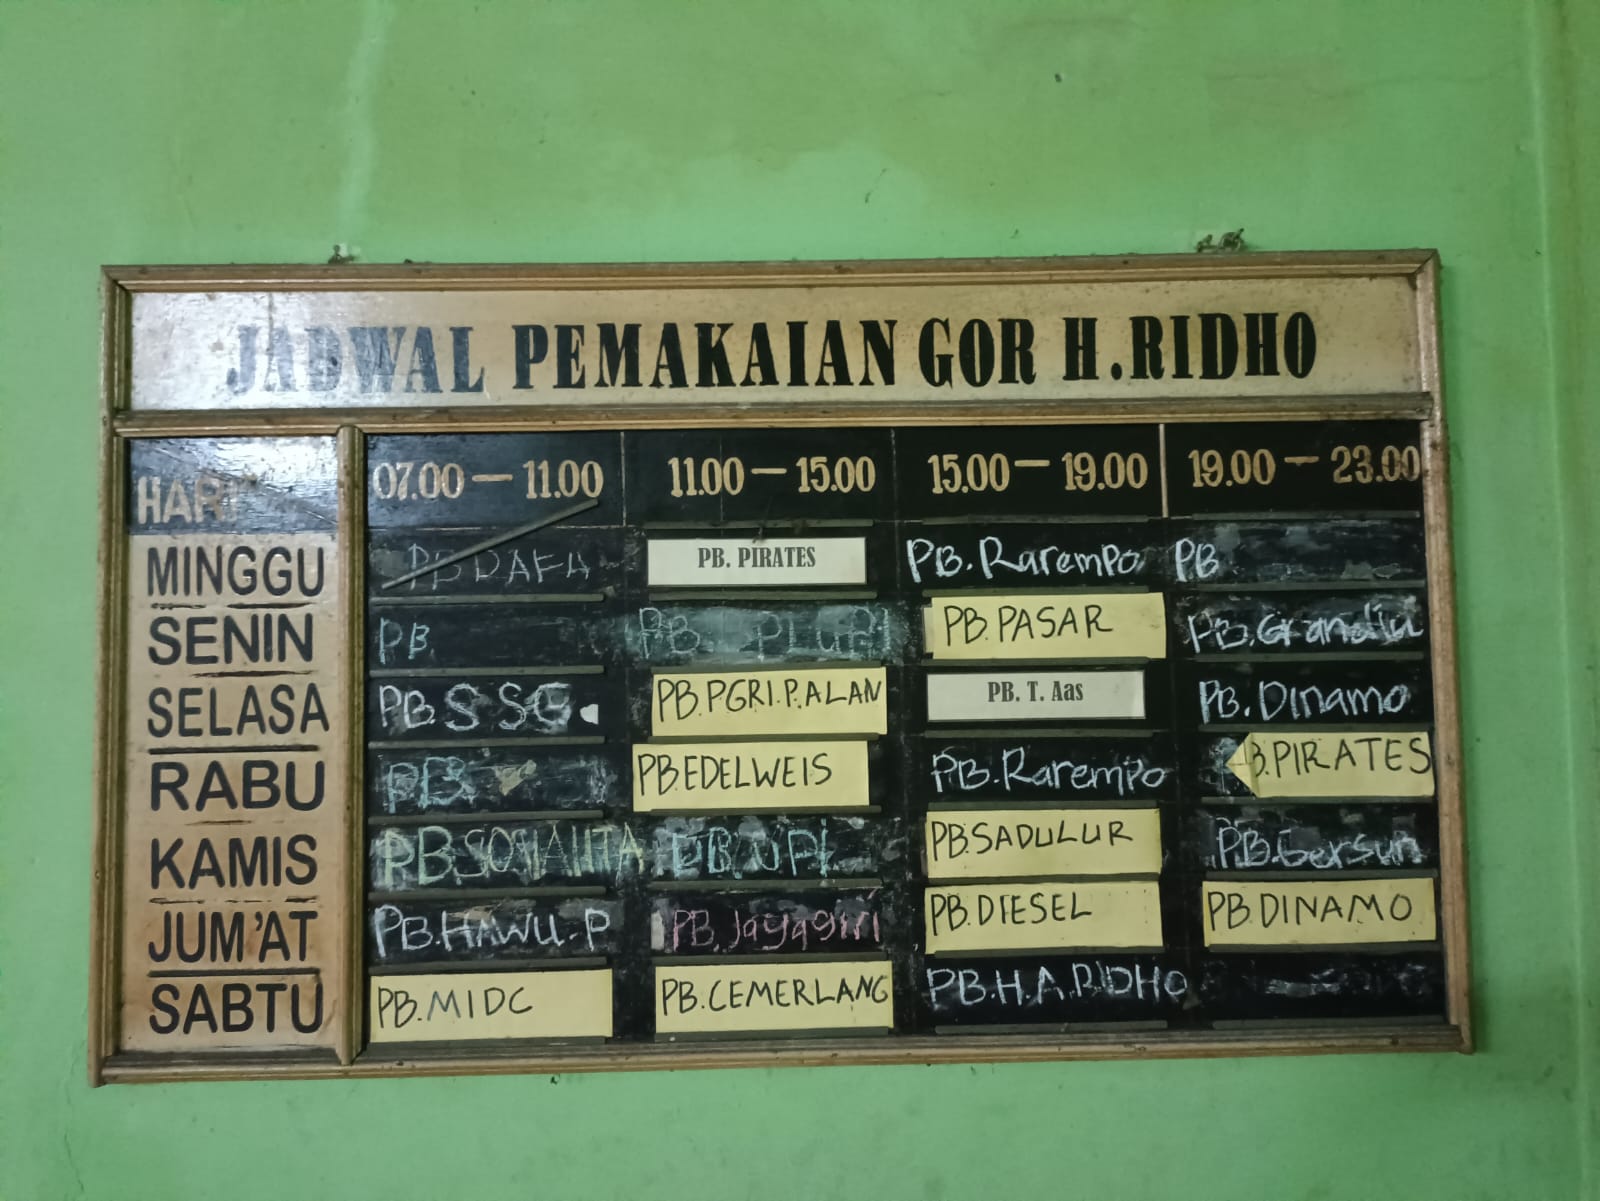 JADWAL PEMAKAIAN GOR H.RIDHO
HARI 07.00 — 11.00 11.00 — 15.00 15.00 — 19.00 19.00 — 23.00
MINGGU PB DAFA PB. PIRATES PB. Rarempo PB
SENIN PB PB. PB.PASAR PB.
SELASA PB. S SG. PB.PGRI.P.ALAN PB. T. Aas PB. Dinamo
RABU PB PB.EDELWEIS PB. Rarempo B.PIRATES
KAMIS PB.SOSIALITA PB.UPI PB.SADULUR PB.Gersun
JUM'AT PB.HAWU-P PB. Jayagiri PB.DIESEL PB.DINAMO
SABTU PB.MIDC PB.CEMERLANG PB.H.A.RIDHO